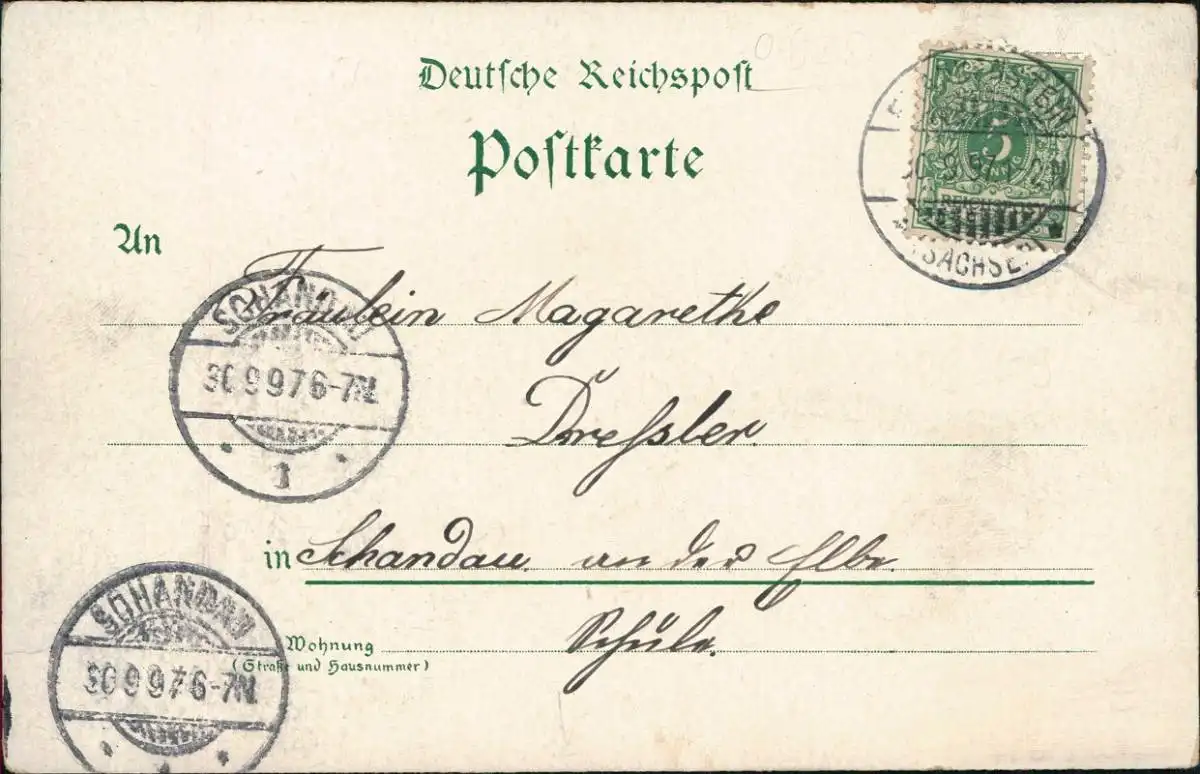 Deutsche Reichspost
Postkarte
5
30.9.97
SACHSE
An
Fräulein Magarethe
SCHANDAU
30 9 97 6-7N.
1
Dressler.
in Schandau an der Elbe.
Wohnung
(Straße und Hausnummer)
Schule.
SCHANDAU
30 9 97 6-7N.